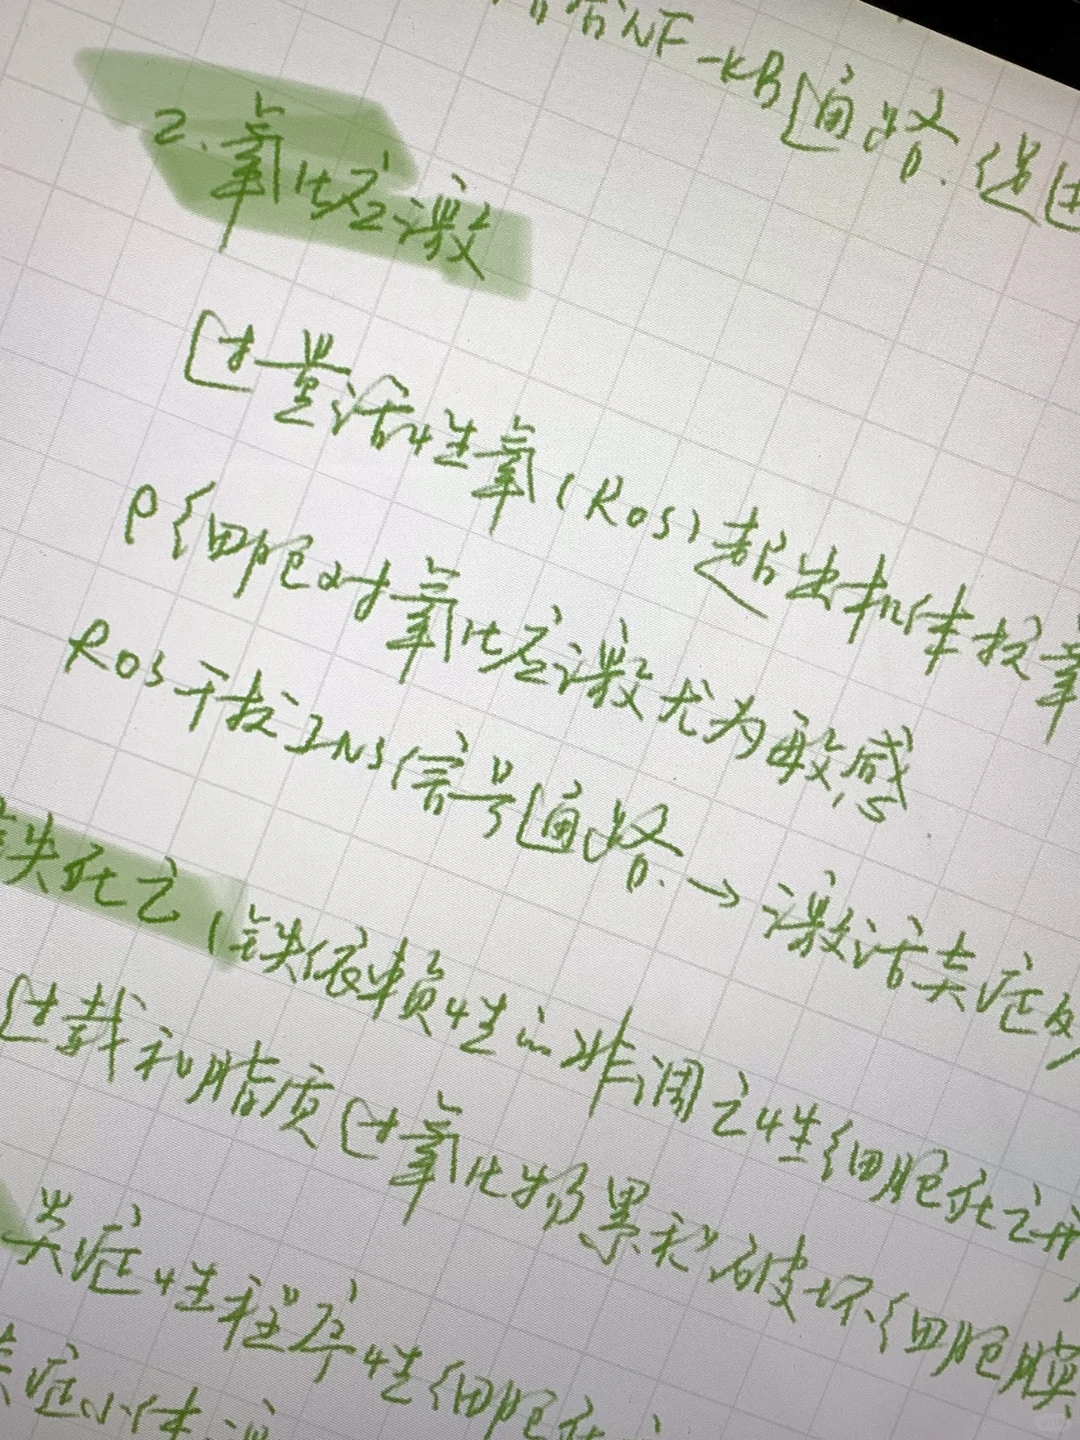 NF-KB通路.促进
2.氧化应激
过量活性氧(ROS)超出机体抗氧
β细胞对氧化应激尤为敏感.
ROS干扰INS信号通路.→激活炎症
铁死亡(铁依赖性的非凋亡性细胞死亡形
过载和脂质过氧化物累积.破坏细胞膜
炎症性程序性细胞死亡
炎症小体